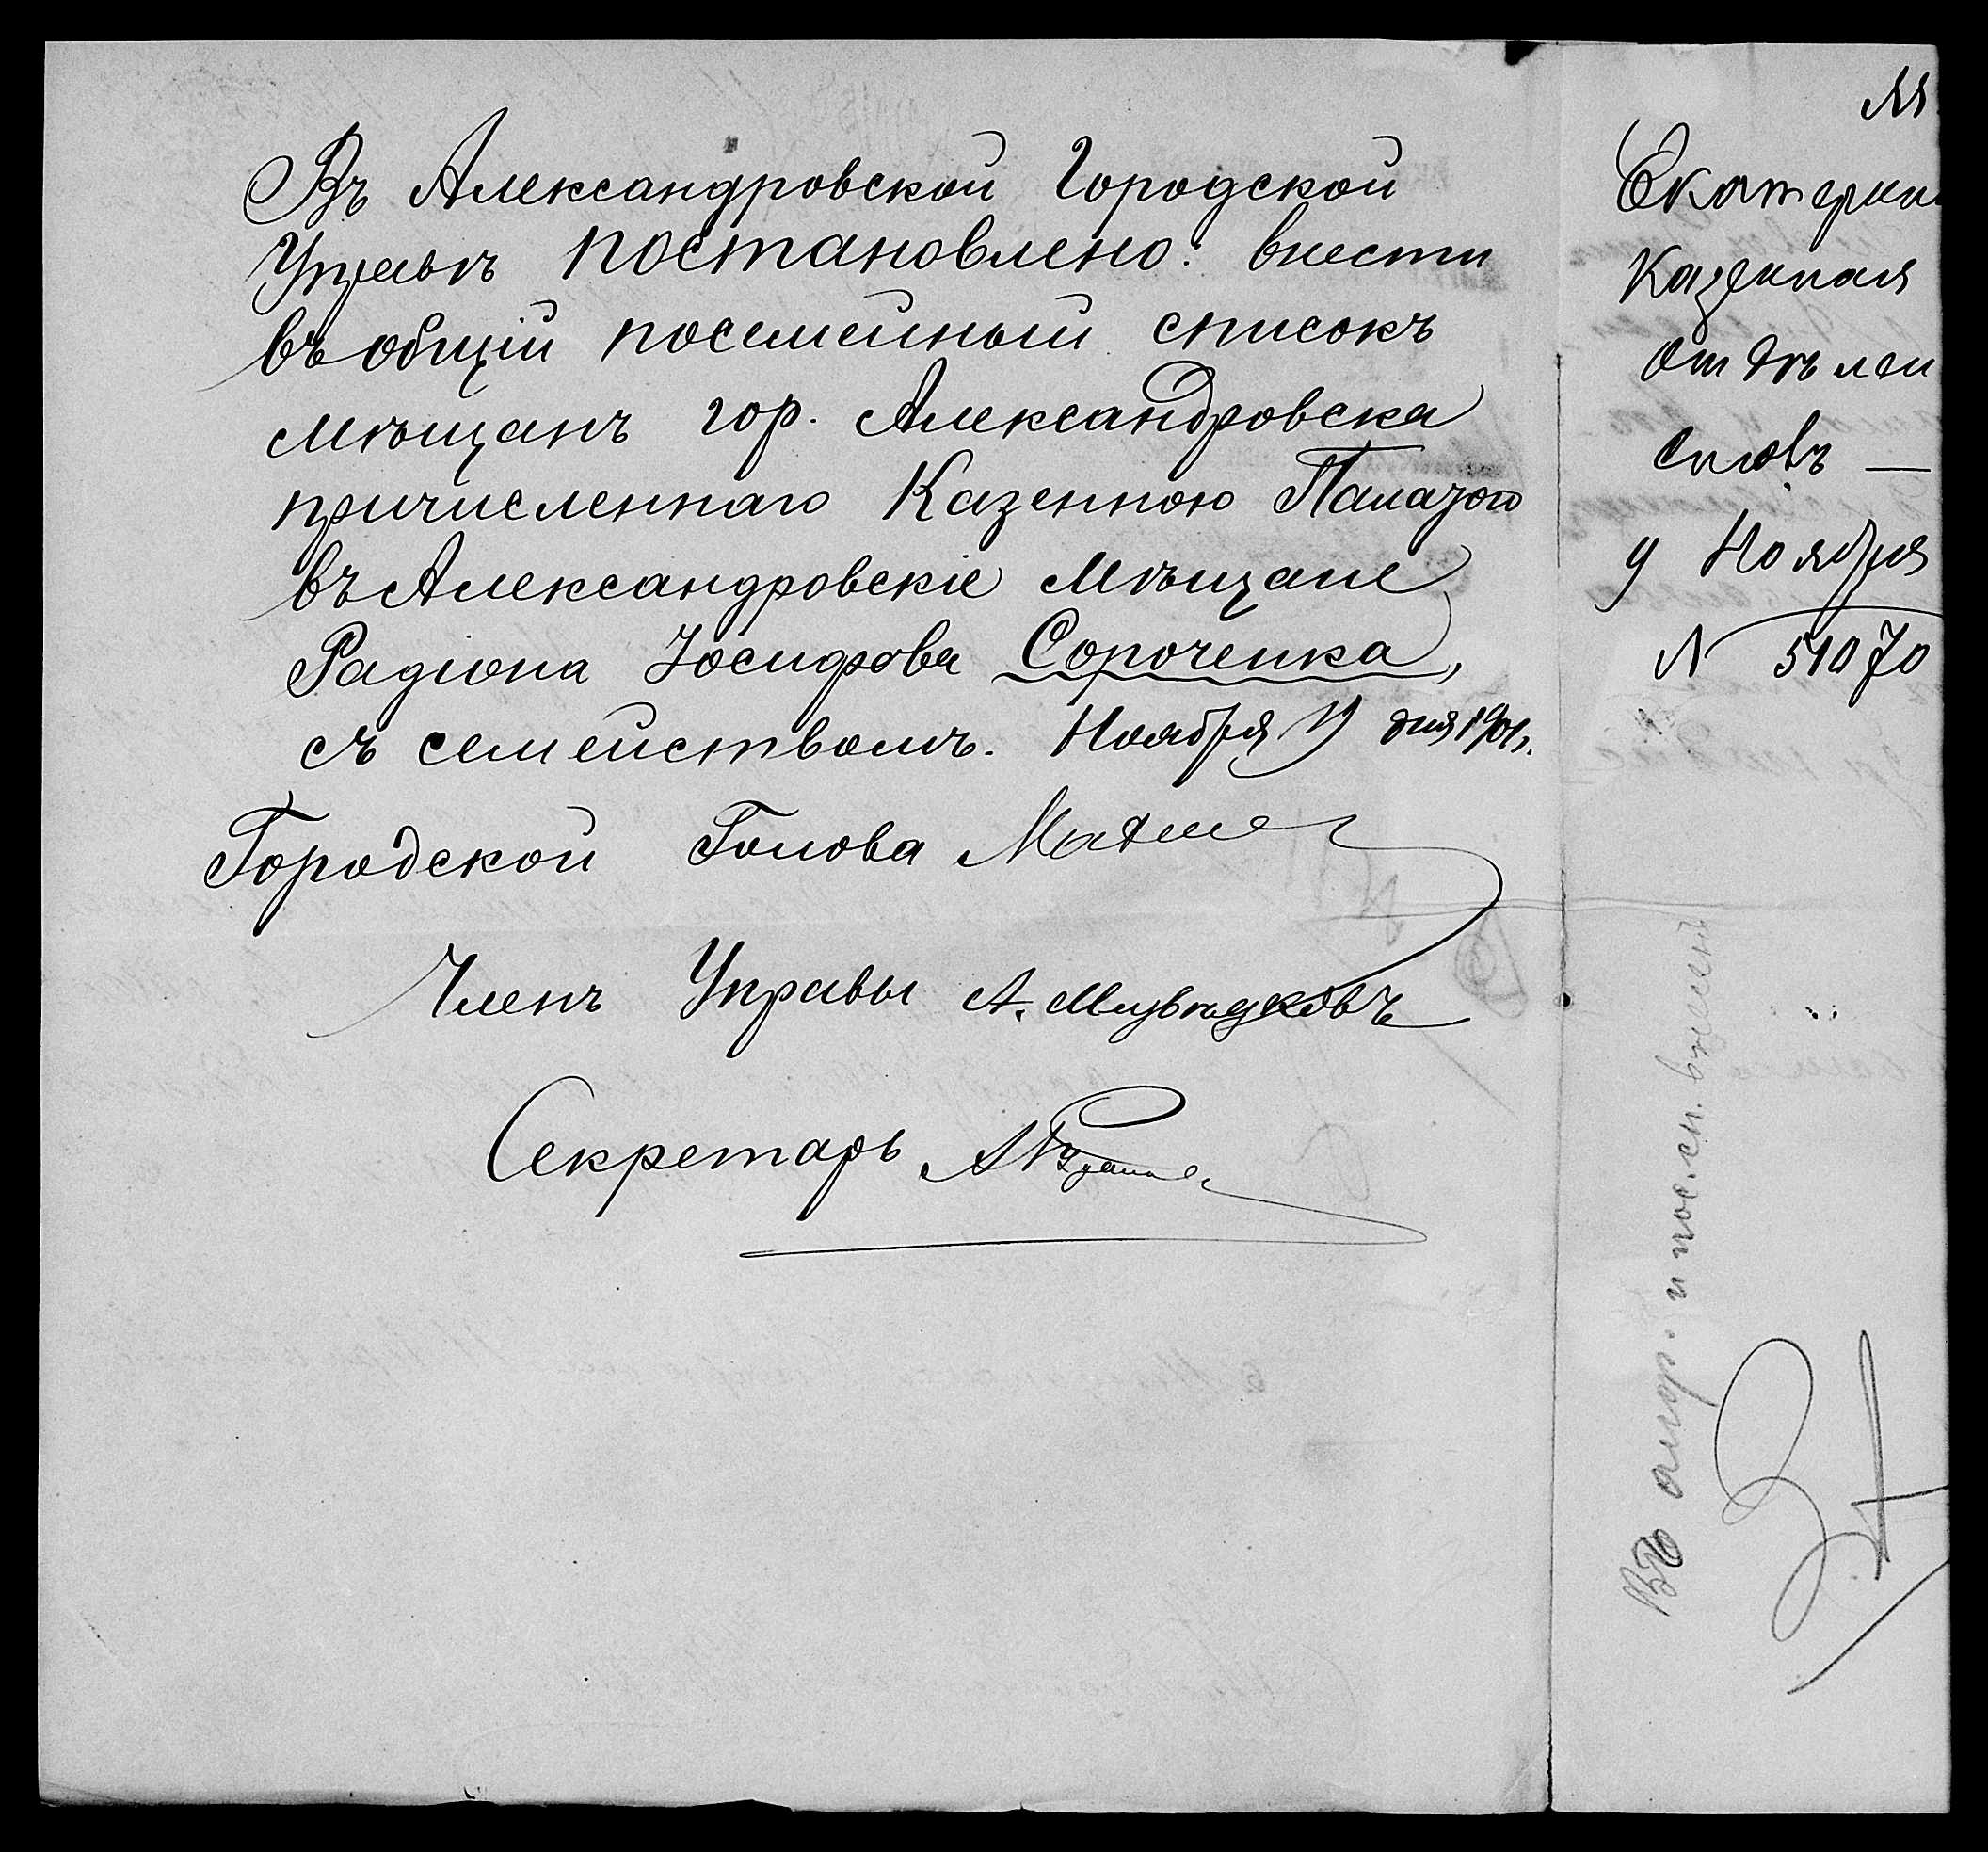 Въ Александровской Городской
Управѣ постановлено: внести
въ общій посемейный списокъ
мѣщанъ гор. Александровска
причисленнаго Казенною Палатою
въ Александровскіе мѣщане
Радіона Іосифова Сороченка,
съ семействомъ. Ноября 19 дня 1901 г.
Городской Голова
Членъ Управы А.
Секретарь
Екатерин
Казенная
Отдѣлен
столъ —
9 Ноября
№ 51070
Въ алф. и пос. сп. внесенъ